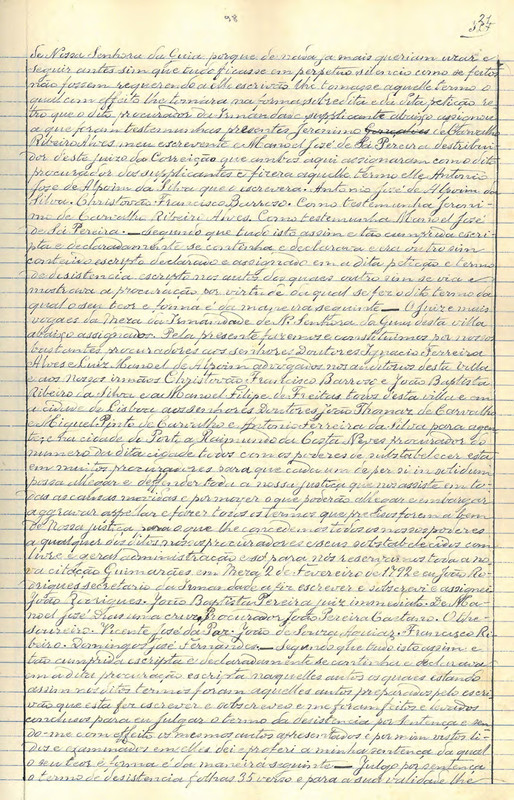 98
21
327
de Nossa Senhora da Guia porque de nada ja mais queriam uzar e
seguir antes sim que tudo ficasse em perpetuo silencio como se feitos
não fossem requerendo a elle escrivão lhe tomasse aquelle termo o
qual com effeito lhe tomara na forma sobredita e da dita petição re
tro que o dito procurador da Irmandade supplicante abaixo assignou
a que foram testemunhas presentes Jeronimo de Carvalho
Ribeiro Alves, meu escrevente e Manoel José de Sá Pereira destribui
dor deste juizo da correição que ambos aqui assignaram com o dito
procurador dos supplicantes e fizera aquelle termo elle Antonio
José de Alpoim da Silva que o escrevera. Antonio José de Alpoim da
Silva. Christovão Francisco Barroso. Como testemunha Jeroni
mo de Carvalho Ribeiro Alves. Como testemunha Manoel José
de Sá Pereira. — Segundo que tudo isto assim e tão cumprida escri
pta e declaradamente se continha e declarava e era outro sim
conteúdo escripto declarado e assignado em a dita petição e termo
de desistencia escripto nos autos dos quaes outro sim se via e
mostrava a procuração por virtude da qual se fez o dito termo da
qual o seu teor e forma é da maneira seguinte — O juiz e mais
vogaes da Meza da Irmandade de N. Senhora da Guia desta villa
abaixo assignados. Pela presente fazemos e constituimos por nossos
bastantes procuradores aos senhores Doutores Ignacio Ferreira
Alves e Luiz Manoel de Alpoim advogados nos auditorios desta villa
e aos nossos irmãos Christovão Francisco Barroso e João Baptista
Ribeiro da Silva e a Manoel Filipe de Freitas todos desta villa e em
a cidade de Lisboa aos senhores Doutores João Thomaz de Carvalho
e Miguel Pinto de Carvalho e Antonio Ferreira da Silva para agen
te, e na cidade do Porto a Raimundo da Costa Neves procurador do
numero da dita cidade todos com os poderes de substabelecer esta
em muitos procuradores para que cada um de per si in solidum
possa allegar e defender toda a nossa justiça que nos assiste em to
das as causas movidas e por mover o que poderão allegar e embargar
aggravar appelar e fazer todos os termos que precisos forem a bem
de Nossa justiça para o que lhe concedemos todos os nossos poderes
a qualquer dos ditos nossos procuradores e seus substabelecidos com
livre e geral administração e só para nós reservamos toda a no
va citação Guimarães em Meza 2 de Fevereiro de 1792 e eu João Ro
drigues secretario da Irmandade a fiz escrever e subscrevi e assignei
João Rodrigues. João Baptista Pereira juiz immediato. De Ma
noel José Dias uma cruz. Procurador João Pereira Caetano. O the
soureiro. Vicente José da Paz. João de Souza Aguiar. Francisco Ri
beiro. Domingos José Fernandes. — Segundo que tudo isto assim e
tão cumprida escripta e declaradamente se continha e declarava
em a dita procuração escripta naquelles autos os quaes estando
assim nos ditos termos foram aquelles autos preparados pelo escri
vão que esta fez escrever e subscreveu e me foram feitos e levados
conclusos para eu julgar o termo da desistencia por sentença e sen
do-me com effeito os mesmos autos apresentados e por mim vistos li
dos e examinados em elles dei e proferi a minha sentença da qual
o seu teor e forma é da maneira seguinte — Julgo por sentença
o termo de desistencia folhas 35 verso e para a sua validade lhe